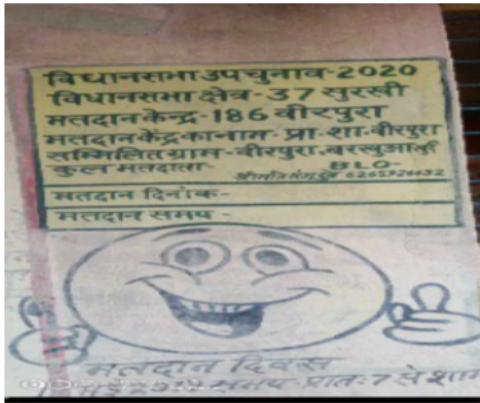 विधानसभा उपचुनाव-2020
विधानसभा क्षेत्र-37 सुरखी
मतदान केन्द्र-186 वीरपुरा
मतदान केंद्र का नाम-प्रा.शा.वीरपुरा
सम्मिलित ग्राम-वीरपुरा,बरखुआ
कुल मतदाता- BLO-
मतदान दिनांक-
मतदान समय-
मतदान दिवस
समय-प्रातः7 से